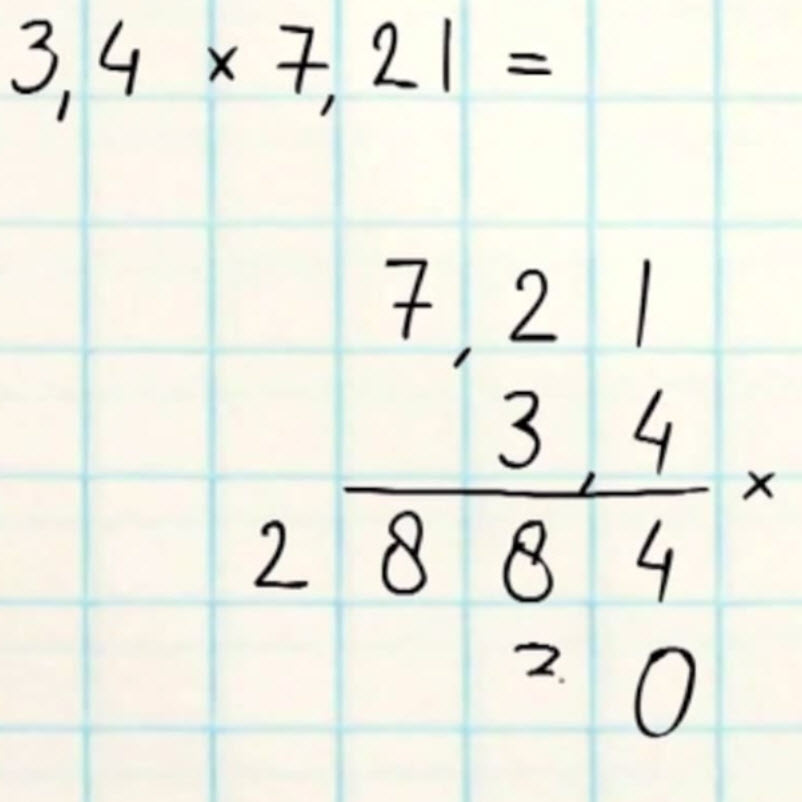 3,4 × 7,21 =
7,21
3,4 ×
2884
0